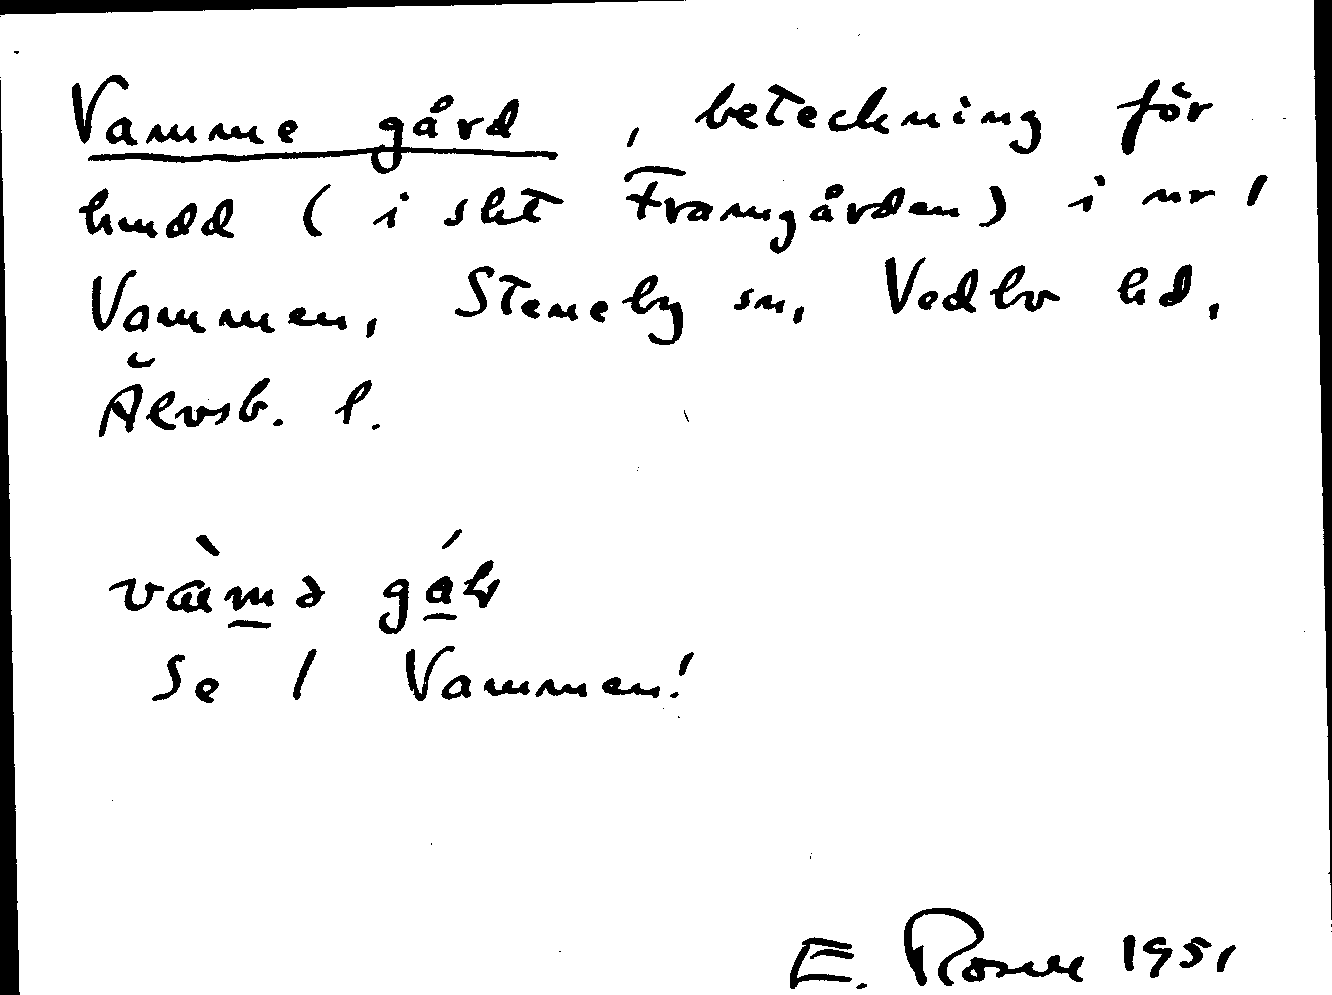 Vamme gård, beteckning för
hmdd (i skt Framgården) i nr 1
Vammen, Steneby sn, Vedbo hd,
Älvsb. l.
Se 1 Vammen!
E. 1951